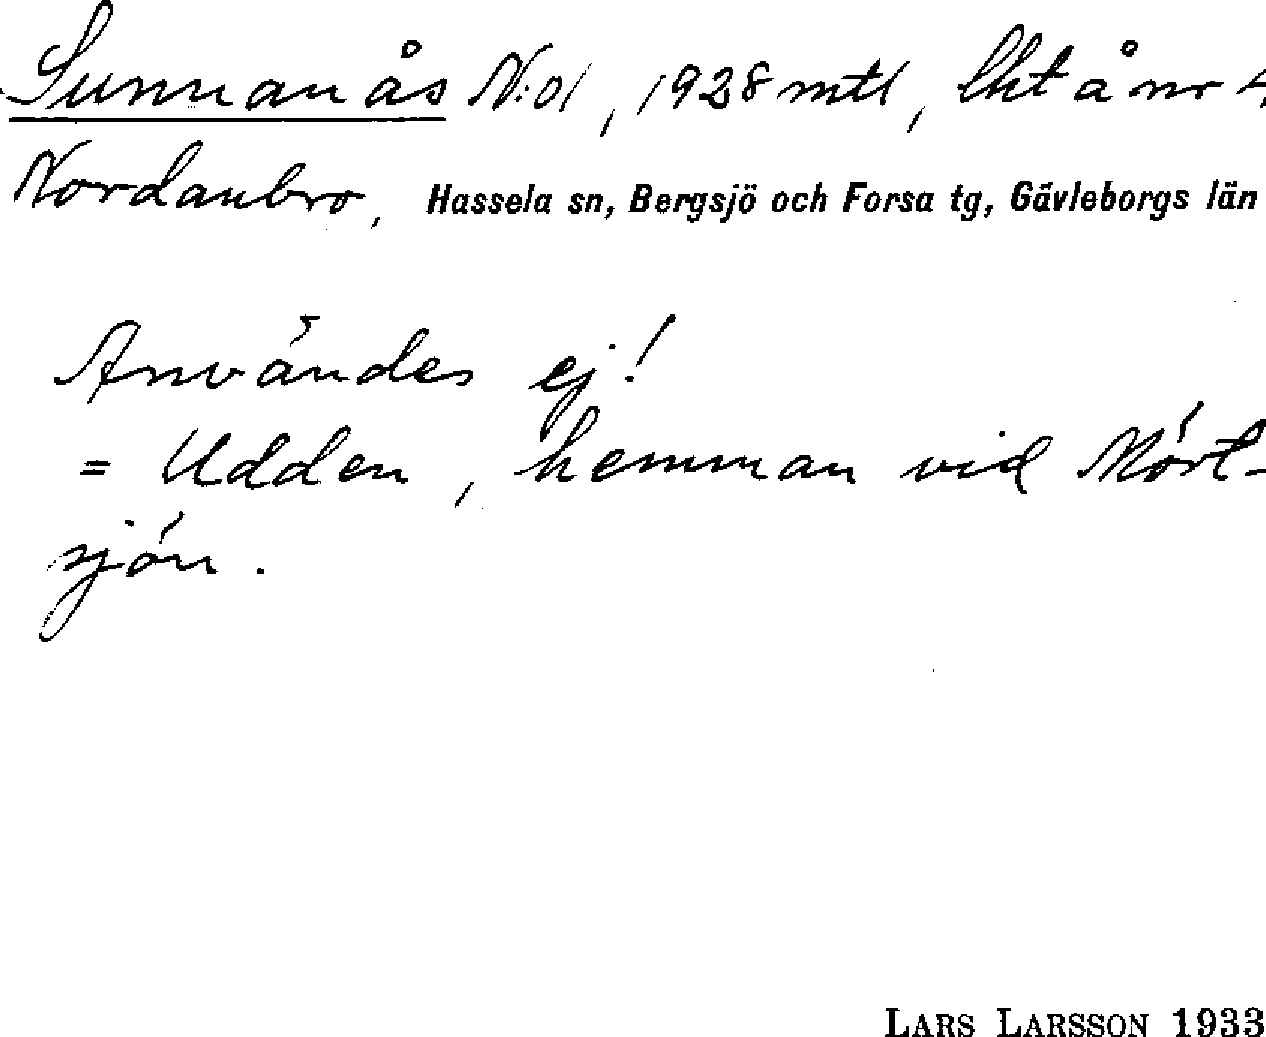 Sunnanås N:o1, 1928 mtl, lht å nr 4
Nordanbro, Hassela sn, Bergsjö och Forsa tg, Gävleborgs län
Användes ej!
= Udden, hemman vid Mört-
sjön.
LARS LARSSON 1933